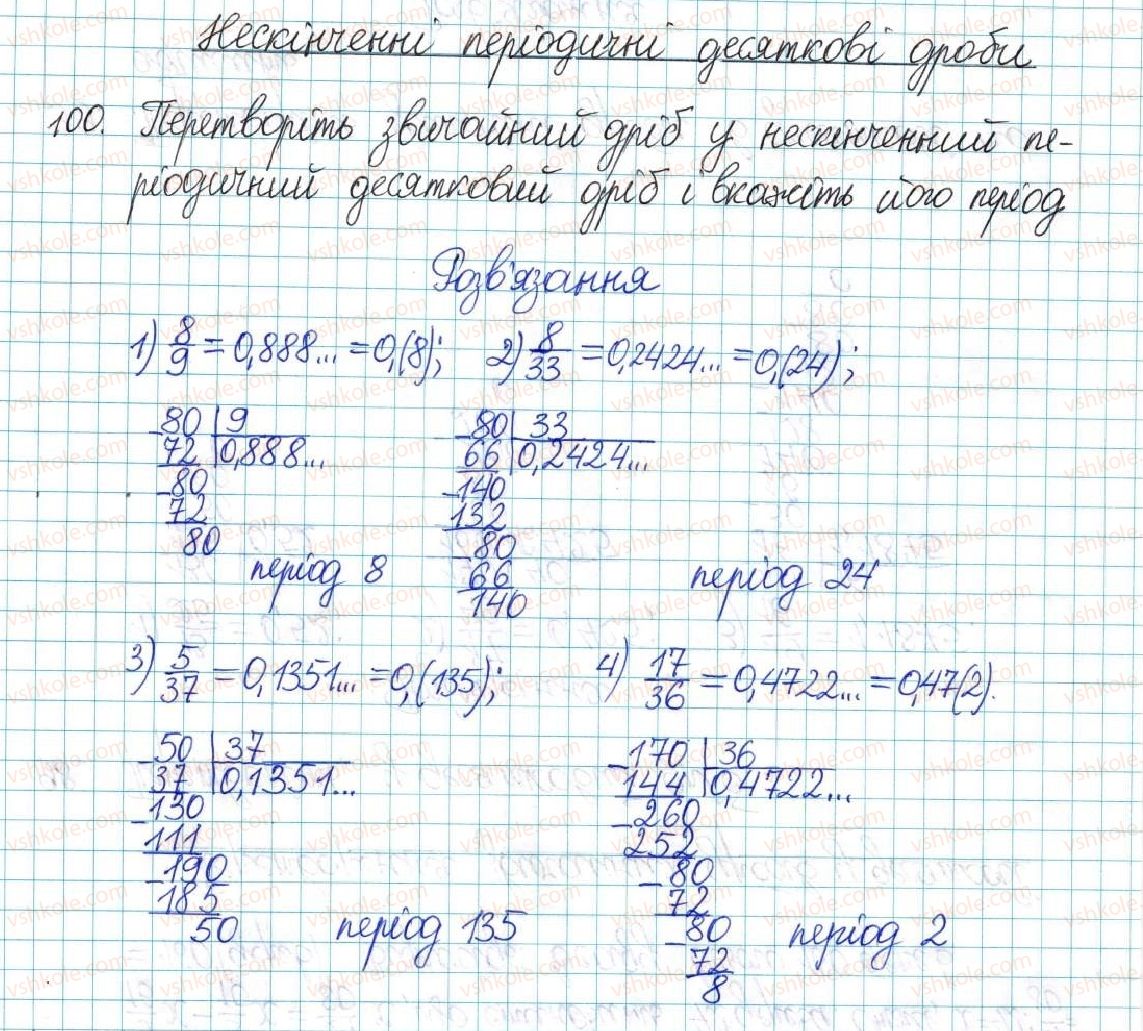 Нескінченні періодичні десяткові дроби
100. Перетворіть звичайний дріб у нескінченний пе-
ріодичний десятковий дріб і вкажіть його період
Розв'язання
1) 8/9 = 0,888... = 0,(8); 2) 8/33 = 0,2424... = 0,(24);
80 | 9
72 | 0,888...
-80
72
80
період 8
-80 | 33
66 | 0,2424...
-140
132
-80
66
140
період 24
3) 5/37 = 0,1351... = 0,(135); 4) 17/36 = 0,4722... = 0,47(2).
-50 | 37
37 | 0,1351...
-130
111
-190
185
50
період 135
-170 | 36
144 | 0,4722...
-260
252
-80
72
-80
72
8
період 2